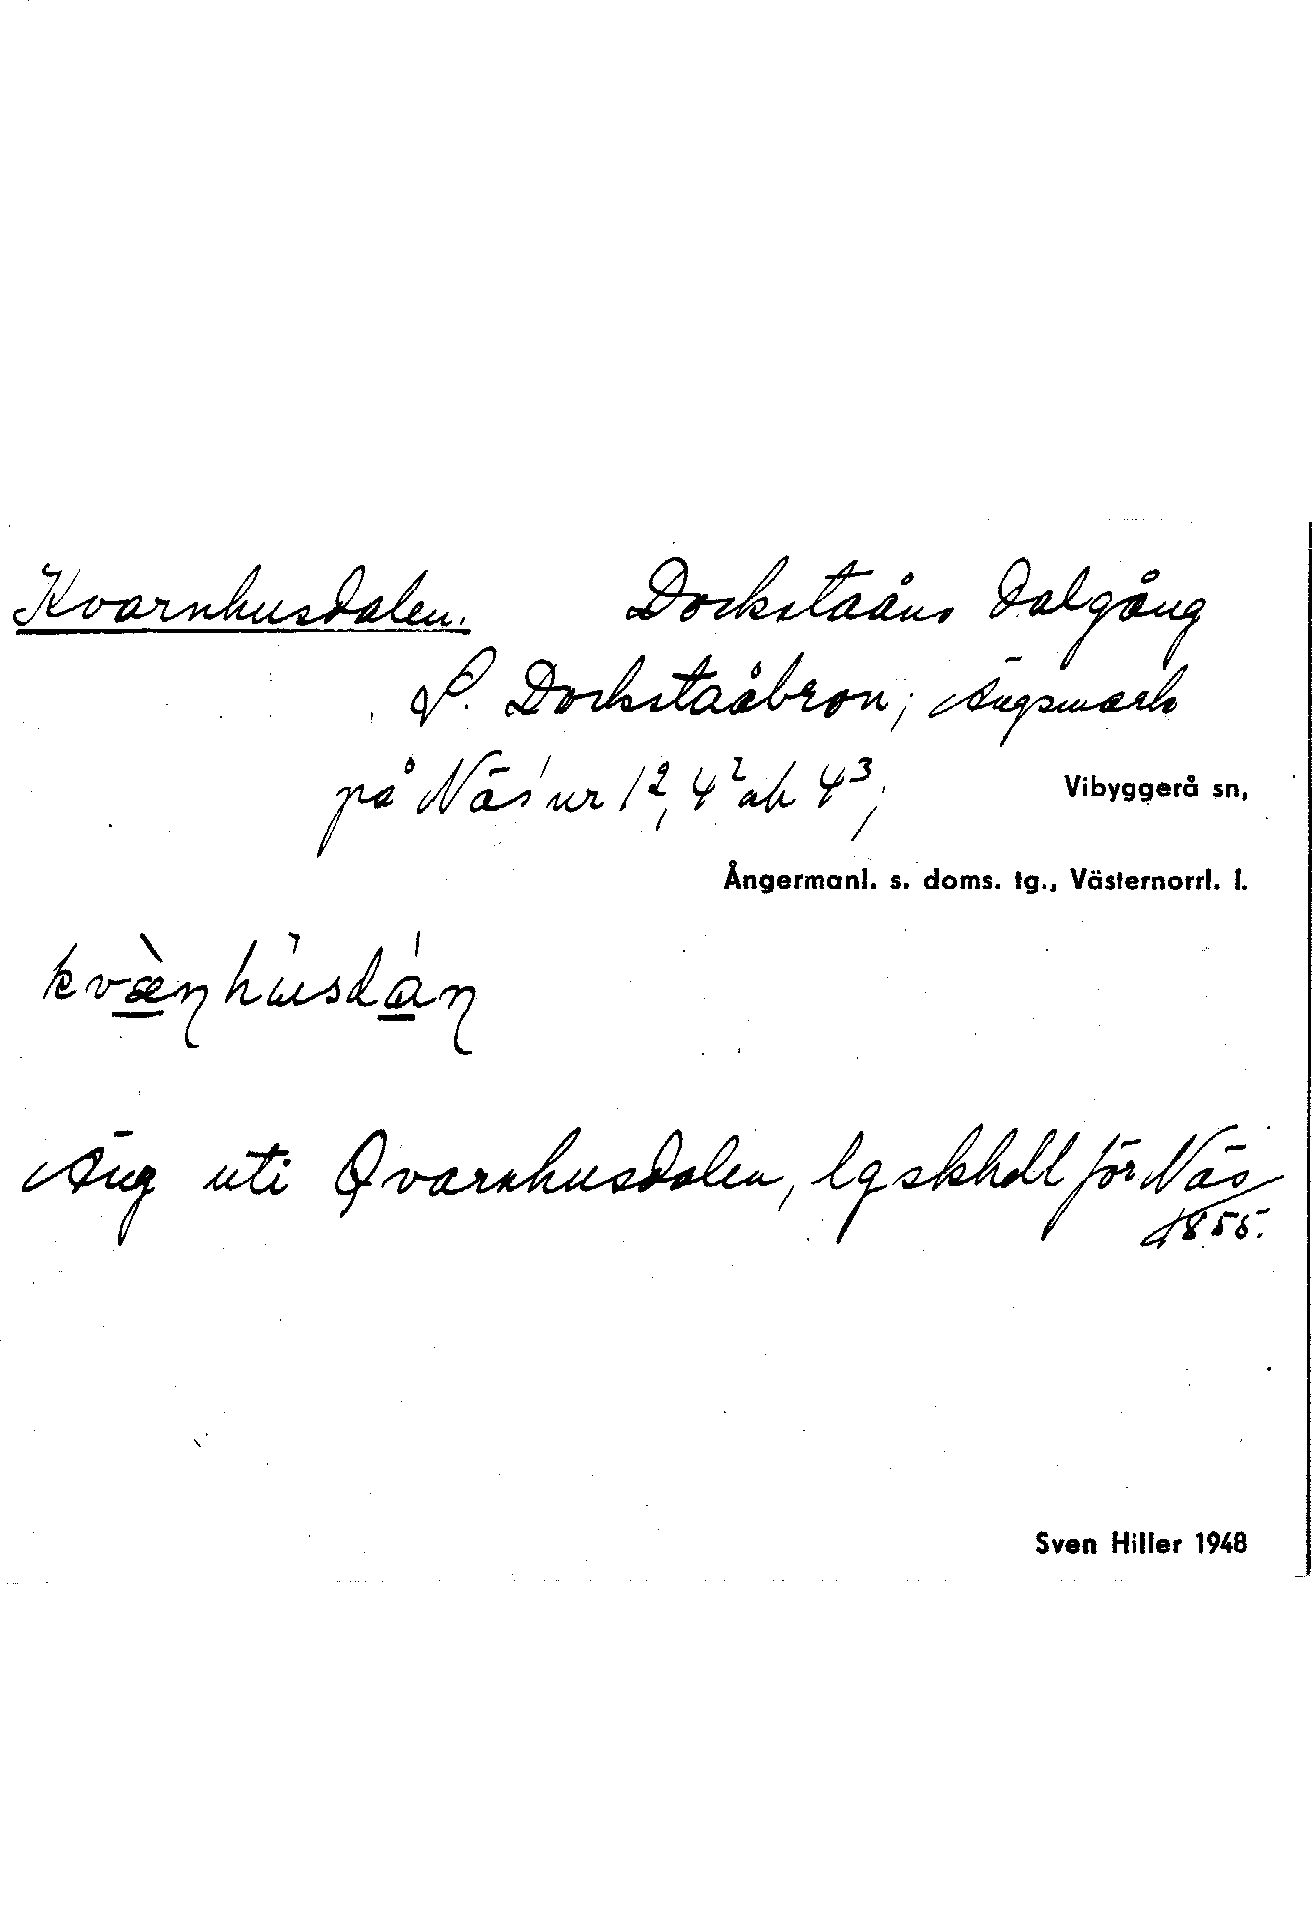 Kvarnhusdalen. Dockstaåns dalgång
S. Dockstaåbron; Ängsmark
på Näs' nr 1², 4² och 4³;
Vibyggerå sn,
Ångermanl. s. doms. tg., Västernorrl. l.
kvæ̀ɳhùsdáɳ
Äng uti Qvarnhusdalen, lgskhdl för Näs
1855.
Sven Hiller 1948